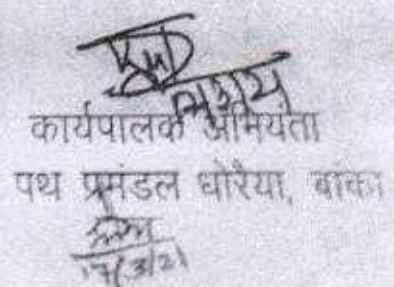 कार्यपालक अभियंता
पथ प्रमंडल धोरैया, बांका
17/3/21